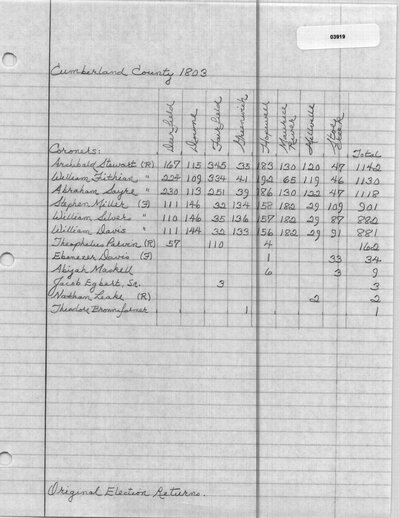 03919
Cumberland County 1803
Deerfield Downe Fairfield Greenwich Hopewell Maurice River Millville Stoe Creek
Coroners: Total
Archibald Stewart (R) 167 115 345 35 183 130 120 47 1142
William Fithian " 224 109 334 41 192 65 119 46 1130
Abraham Sayre " 230 113 251 39 186 130 122 47 1118
Stephen Miller (F) 111 146 32 134 158 182 29 109 901
William Silvers " 110 146 35 136 157 182 29 87 882
William Davis " 111 144 32 133 156 182 29 91 881
Theophilus Parvin (R) 57 110 4 162
Ebenezer Davis (F) 1 33 34
Abijah Maskell 6 3 9
Jacob Egbert, Sr. 3 3
Nathan Leake (R) 2 2
Theodore 1 1
Original Election Returns.